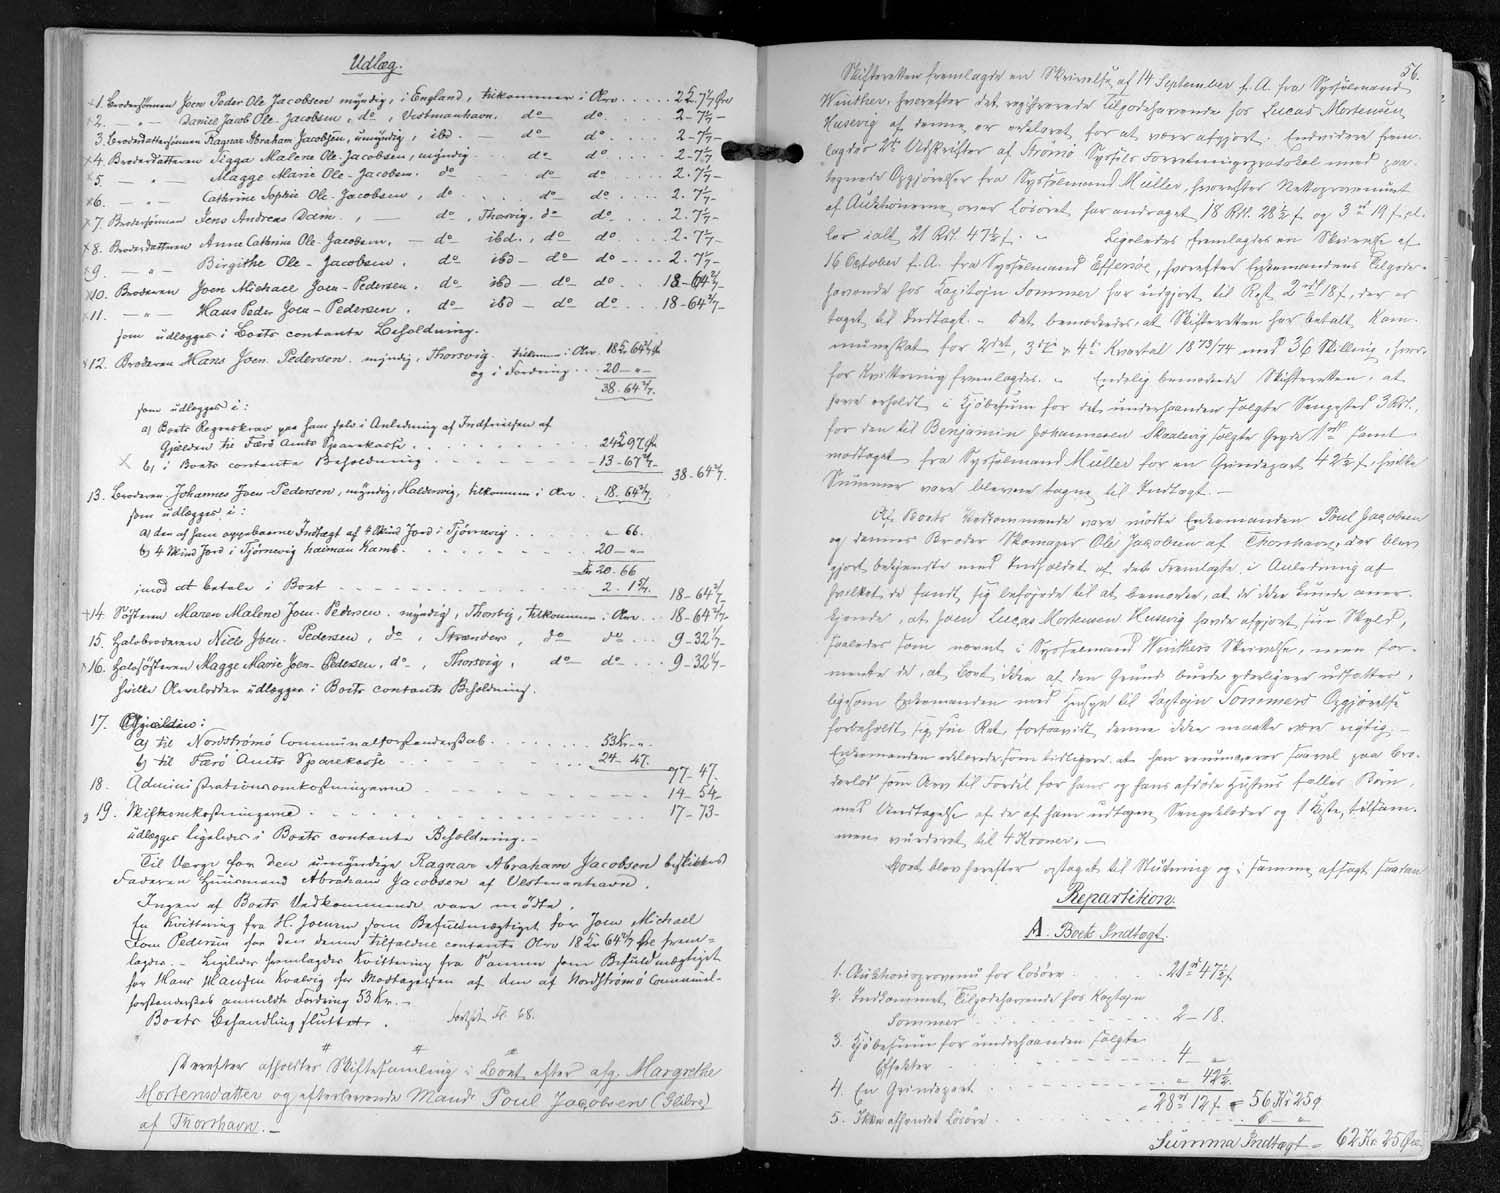 Udlæg.
1. Brodersönnen Joen Peder Ole Jacobsen myndig, i England, tilkommer i Arv . . . . 2 Kr 7 1/7 Øre
2. — " — Daniel Jacob Ole-Jacobsen, do, Vestmanhavn, do do . . . . 2 - 7 1/7 -
3. Broderdattersönnen Ragnar Abraham Jacobsen, umyndig, ibd. — do do . . . . 2 - 7 1/7 -
4. Broderdatteren Sigga Malene Ole-Jacobsen, myndig . . . do do . . . . 2 - 7 1/7 -
5. — " — Magge Marie Ole-Jacobsen. do . . . do do . . . . 2 - 7 1/7 -
6. — " — Cathrine Sophie Ole-Jacobsen, do . . . do do . . . . 2. 7 1/7 -
7. Brodersönnen Jens Andreas Dam, . — do, Thorsvig, do do . . . . 2. 7 1/7 -
8. Broderdatteren Anne Cathrine Ole-Jacobsen, — do ibd., do do . . . . 2. 7 1/7 -
9. — " — Birgithe Ole-Jacobsen, do ibd — do do . . . . 2. 7 1/7 -
10. Broderen Joen Michael Joen-Pedersen, do ibd — do do . . . . 18 - 64 2/7 -
11. — " — Hans Peder Joen-Pedersen, do ibd — do do . . . . 18 - 64 2/7 -
som udlægges i Boets contante Beholdning.
12. Broderen Hans Joen-Pedersen, myndig, Thorsvig, tilkommer i Arv 18 Kr 64 2/7 Ør
og i Fordring . . . 20 — " —
38. 64 2/7.
som udlægges i:
a) Boets Regreskrav paa ham selv i Anledning af Indfrielsen af
Gjælden til Færö Amts Sparekasse . . . . 24 Kr 97 Ør
b) i Boets contante Beholdning . . . . 13 - 67 2/7 - 38 - 64 2/7.
13. Broderen Johannes Joen-Pedersen, myndig, Haldersvig, tilkommer i Arv . . 18 - 64 2/7.
som udlægges i:
a) den af ham oppebaarne Indtægt af 4 Skind Jord i Tjörnevig . . . . " 66.
b) 4 Skind Jord i Tjörnevig haiman Kamb . . . . 20 — " —
Kr 20 - 66
imod at betale i Boet . . . . 2. 1 5/7. 18 - 64 2/7 -
14. Söstren Maren Malene Joen-Pedersen, myndig, Thorsvig, tilkommer i Arv . . . 18 - 64 2/7 -
15. Halvbroderen Niels Joen-Pedersen, do, Strænder, do do . . . 9 - 32 1/7 -
16. Halvsösteren Magge Marie Joen-Pedersen, do, Thorsvig, do do . . . 9 - 32 1/7 -
hvilke Arvelodder udlægges i Boets contante Beholdning.
17. Gjælden:
a) til Nordströmö Communalforstanderskab . . . . 53 Kr - " -
b) til Færö Amts Sparekasse . . . . 24 - 47. 77 - 47.
18. Administrationsomkostningerne . . . . 14 - 54 -
19. Skifteomkostningerne . . . . 17 - 73 -
udlægges ligeledes i Boets contante Beholdning. —
Til Værge for den umyndige Ragnar Abraham Jacobsen beskikkes
Faderen Huusmand Abraham Jacobsen af Vestmanhavn.
Ingen af Boets Vedkommende vare mödte.
En Kvittering fra H. Joensen som Befuldmægtiget for Joen Michael
Joen Pedersen for den denne tilfaldne contante Arv 18 Kr 64 2/7 Øre frem=
lagdes. — Ligeledes fremlagdes Kvittering fra Samme som Befuldmægtiget
for Hans Hansen Kvalvig for Modtagelsen af den af Nordströmö Communal-
forstanderskab anmeldte Fordring 53 Kr. —
Boets Behandling sluttet. Fortsat Fl. 68.
Derefter afholdtes Skiftesamling i Boet efter afg. Margrethe
Mortensdatter og efterlevende Mand Poul Jacobsen
af Thorshavn. —
56.
Skifteretten fremlagde en Skrivelse af 14 September f. A. fra Sysselmand
Winther, hvorefter det registrerede Tilgodehavende hos Lucas Mortensen
Husevig af denne er erklæret for at være afgjort. Endvidere frem-
lagdes 2de Udskrifter af Strömö Syssels Forretningsprotokol med paa-
tegnede Opgjörelser fra Sysselmand Müller, hvorefter Nettoprovenuet
af Auktionerne over Lösöret har andraget 18 Rd. 28 1/2 f og 3 rd 19 f, el-
ler ialt 21 Rd. 47 1/2 f. — Ligeledes fremlagdes en Skrivelse af
16 October f. A. fra Sysselmand Effersöe, hvorefter Enkemandens Tilgode-
havende hos Capitajn Sommer har udgjort til Rest 2 rd 18 f, der er
taget til Indtægt. — Det bemærkedes, at Skifteretten har betalt Kom-
muneskat for 2det, 3die og 4de Kvartal 1873/74 med 36 Skilling, hvor-
for Kvittering fremlagdes. — Endelig bemærkede Skifteretten, at
have erholdt i Kjöbesum for det underhaanden solgte Sengested 3 Rd.,
for den til Benjamin Johannesen Skaalevig solgte Gryde 1 rd samt
modtaget fra Sysselmand Müller for en Grindepart 42 1/2 f, hvilke
Summer vare blevne tagne til Indtægt. —
Af Boets Vedkommende vare mödte Enkemanden Poul Jacobsen
og dennes Broder Skomager Ole Jacobsen af Thorshavn, der blev
gjort bekjendte med Indholdet af det Fremlagte, i Anledning af
hvilket de fandt sig beföiede til at bemærke, at de ikke kunde aner-
kjende, at Joen Lucas Mortensen Husevig havde afgjort sin Skyld,
saaledes som nævnt i Sysselmand Winthers Skrivelse, men for-
mente de, at Boet ikke af den Grund burde yderligere udsættes,
ligesom Enkemanden med Hensyn til Captajn Sommers Opgjörelse
forbeholdt sig sin Ret, forsaavidt denne ikke maatte være rigtig. —
Enkemanden erklærede som tidligere, at han renuncerer saavel paa Bro-
derlod som Arv til Fordel for hans og hans afdöde Hustrus fælles Börn,
med Undtagelse af de af ham udtagne Sengeklæder og 1 Kiste, tilsam-
men vurderet til 4 Kroner. —
Boet blev herefter optaget til Slutning og i samme afsagt saadan
Repartition.
A. Boets Indtægt.
1. Auktionsprovenu for Lösöre . . . . 21 rd 47 1/2 f
2. Indkommet Tilgodehavende hos Kaptajn
Sommer . . . . 2 — 18.
3. Kjöbesum for underhaanden solgte
Effekter . . . . 4 — "
4. En Grindepart . . . . " 42 1/2.
= 28 rd 12 f = 56 Kr 25 Ø
5. Ikke afhændet Lösöre . . . . 6 "
Summa Indtægt = 62 Kr. 25 Øre